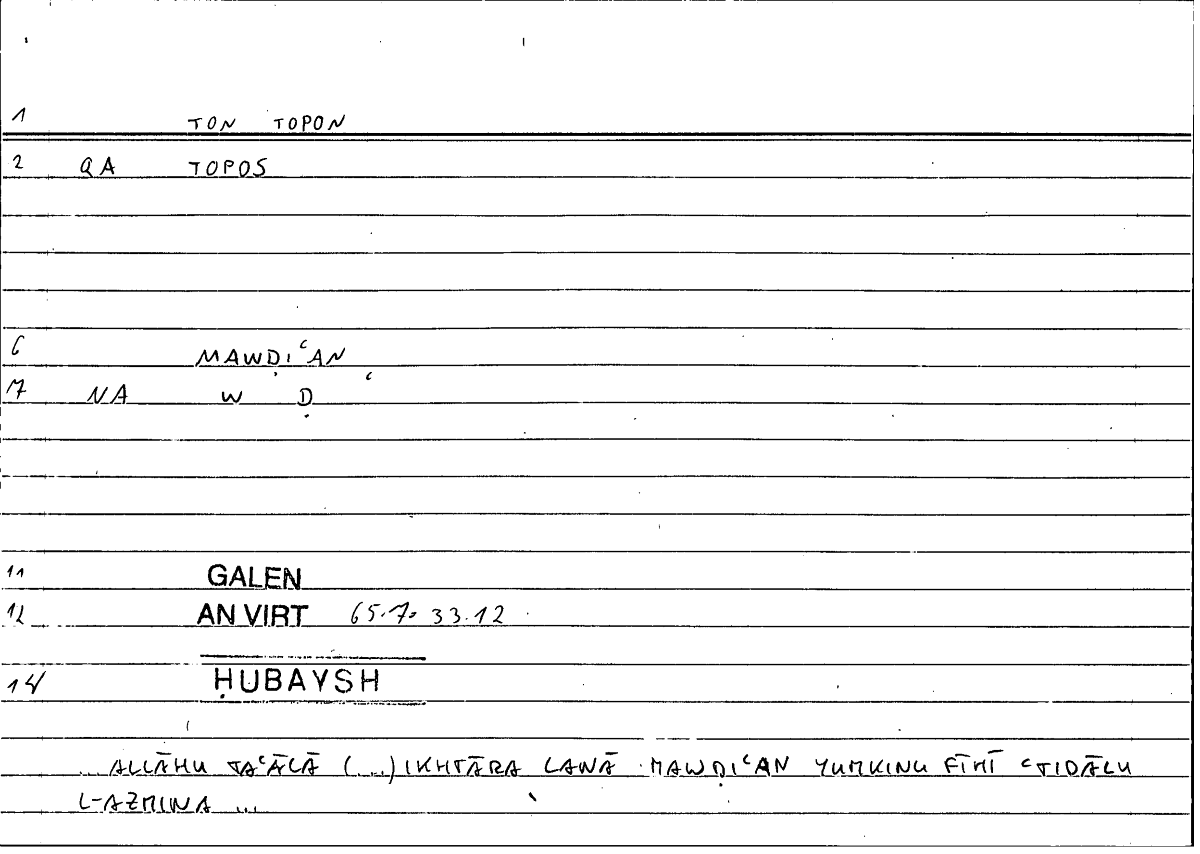 1 TON TOPON
2 QA TOPOS
6 MAWḌIʿAN
7 NA W Ḍ ʿ
11 GALEN
12 AN VIRT 65.7 33.12
14 ḤUBAYSH
... ALLĀHU TAʿĀLĀ (...) IKHTĀRA LANĀ MAWḌIʿAN YUMKINU FĪHĪ ʿTIDĀLU
L-AZMINA ...